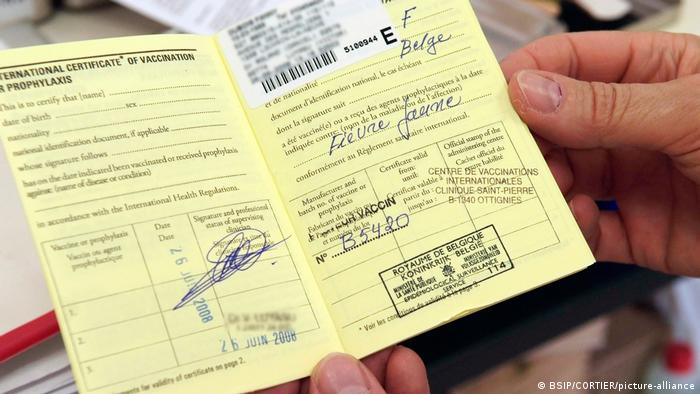 INTERNATIONAL CERTIFICATE* OF VACCINATION
OR PROPHYLAXIS
This is to certify that [name]
date of birth sex
nationality
national identification document, if applicable
whose signature follows
has on the date indicated been vaccinated or received prophylaxis
against: (name of disease or condition)
in accordance with the International Health Regulations.
Vaccine or prophylaxis
Vaccin ou agent
prophylactique
Date
Date
Signature and professional
status of supervising
clinician
1.
2.
3.
26 JUIN 2008
26 JUIN 2008
for validity of certificate on page 2.
5100944 E
F
et de nationalité
Belge
document d'identification national, le cas échéant
dont la signature suit
a été vacciné(e) ou a reçu des agents prophylactiques à la date
indiquée contre: (nom de la maladie ou de l'affection)
Fièvre Jaune
conformément au Règlement sanitaire international.
Manufacturer and
batch no. of vaccine or
prophylaxis
Fabricant du vaccin
Certificate valid
from:
until:
Certificat valable à
partir du:
jusqu'au:
Official stamp of the
administering centre
Cachet officiel du
centre habilité
CENTRE DE VACCINATIONS
INTERNATIONALES
CLINIQUE SAINT-PIERRE
B-1340 OTTIGNIES
VACCIN
N° B5420
ROYAUME DE BELGIQUE
KONINKRIJK BELGIE
MINISTERE DE
LA SANTE PUBLIQUE
MINISTERIE VAN
VOLKSGEZONDHEID
EPIDEMIOLOGICAL SURVEILLANCE
114
* Voir les conditions de validité à la page 2.
© BSIP/CORTIER/picture-alliance